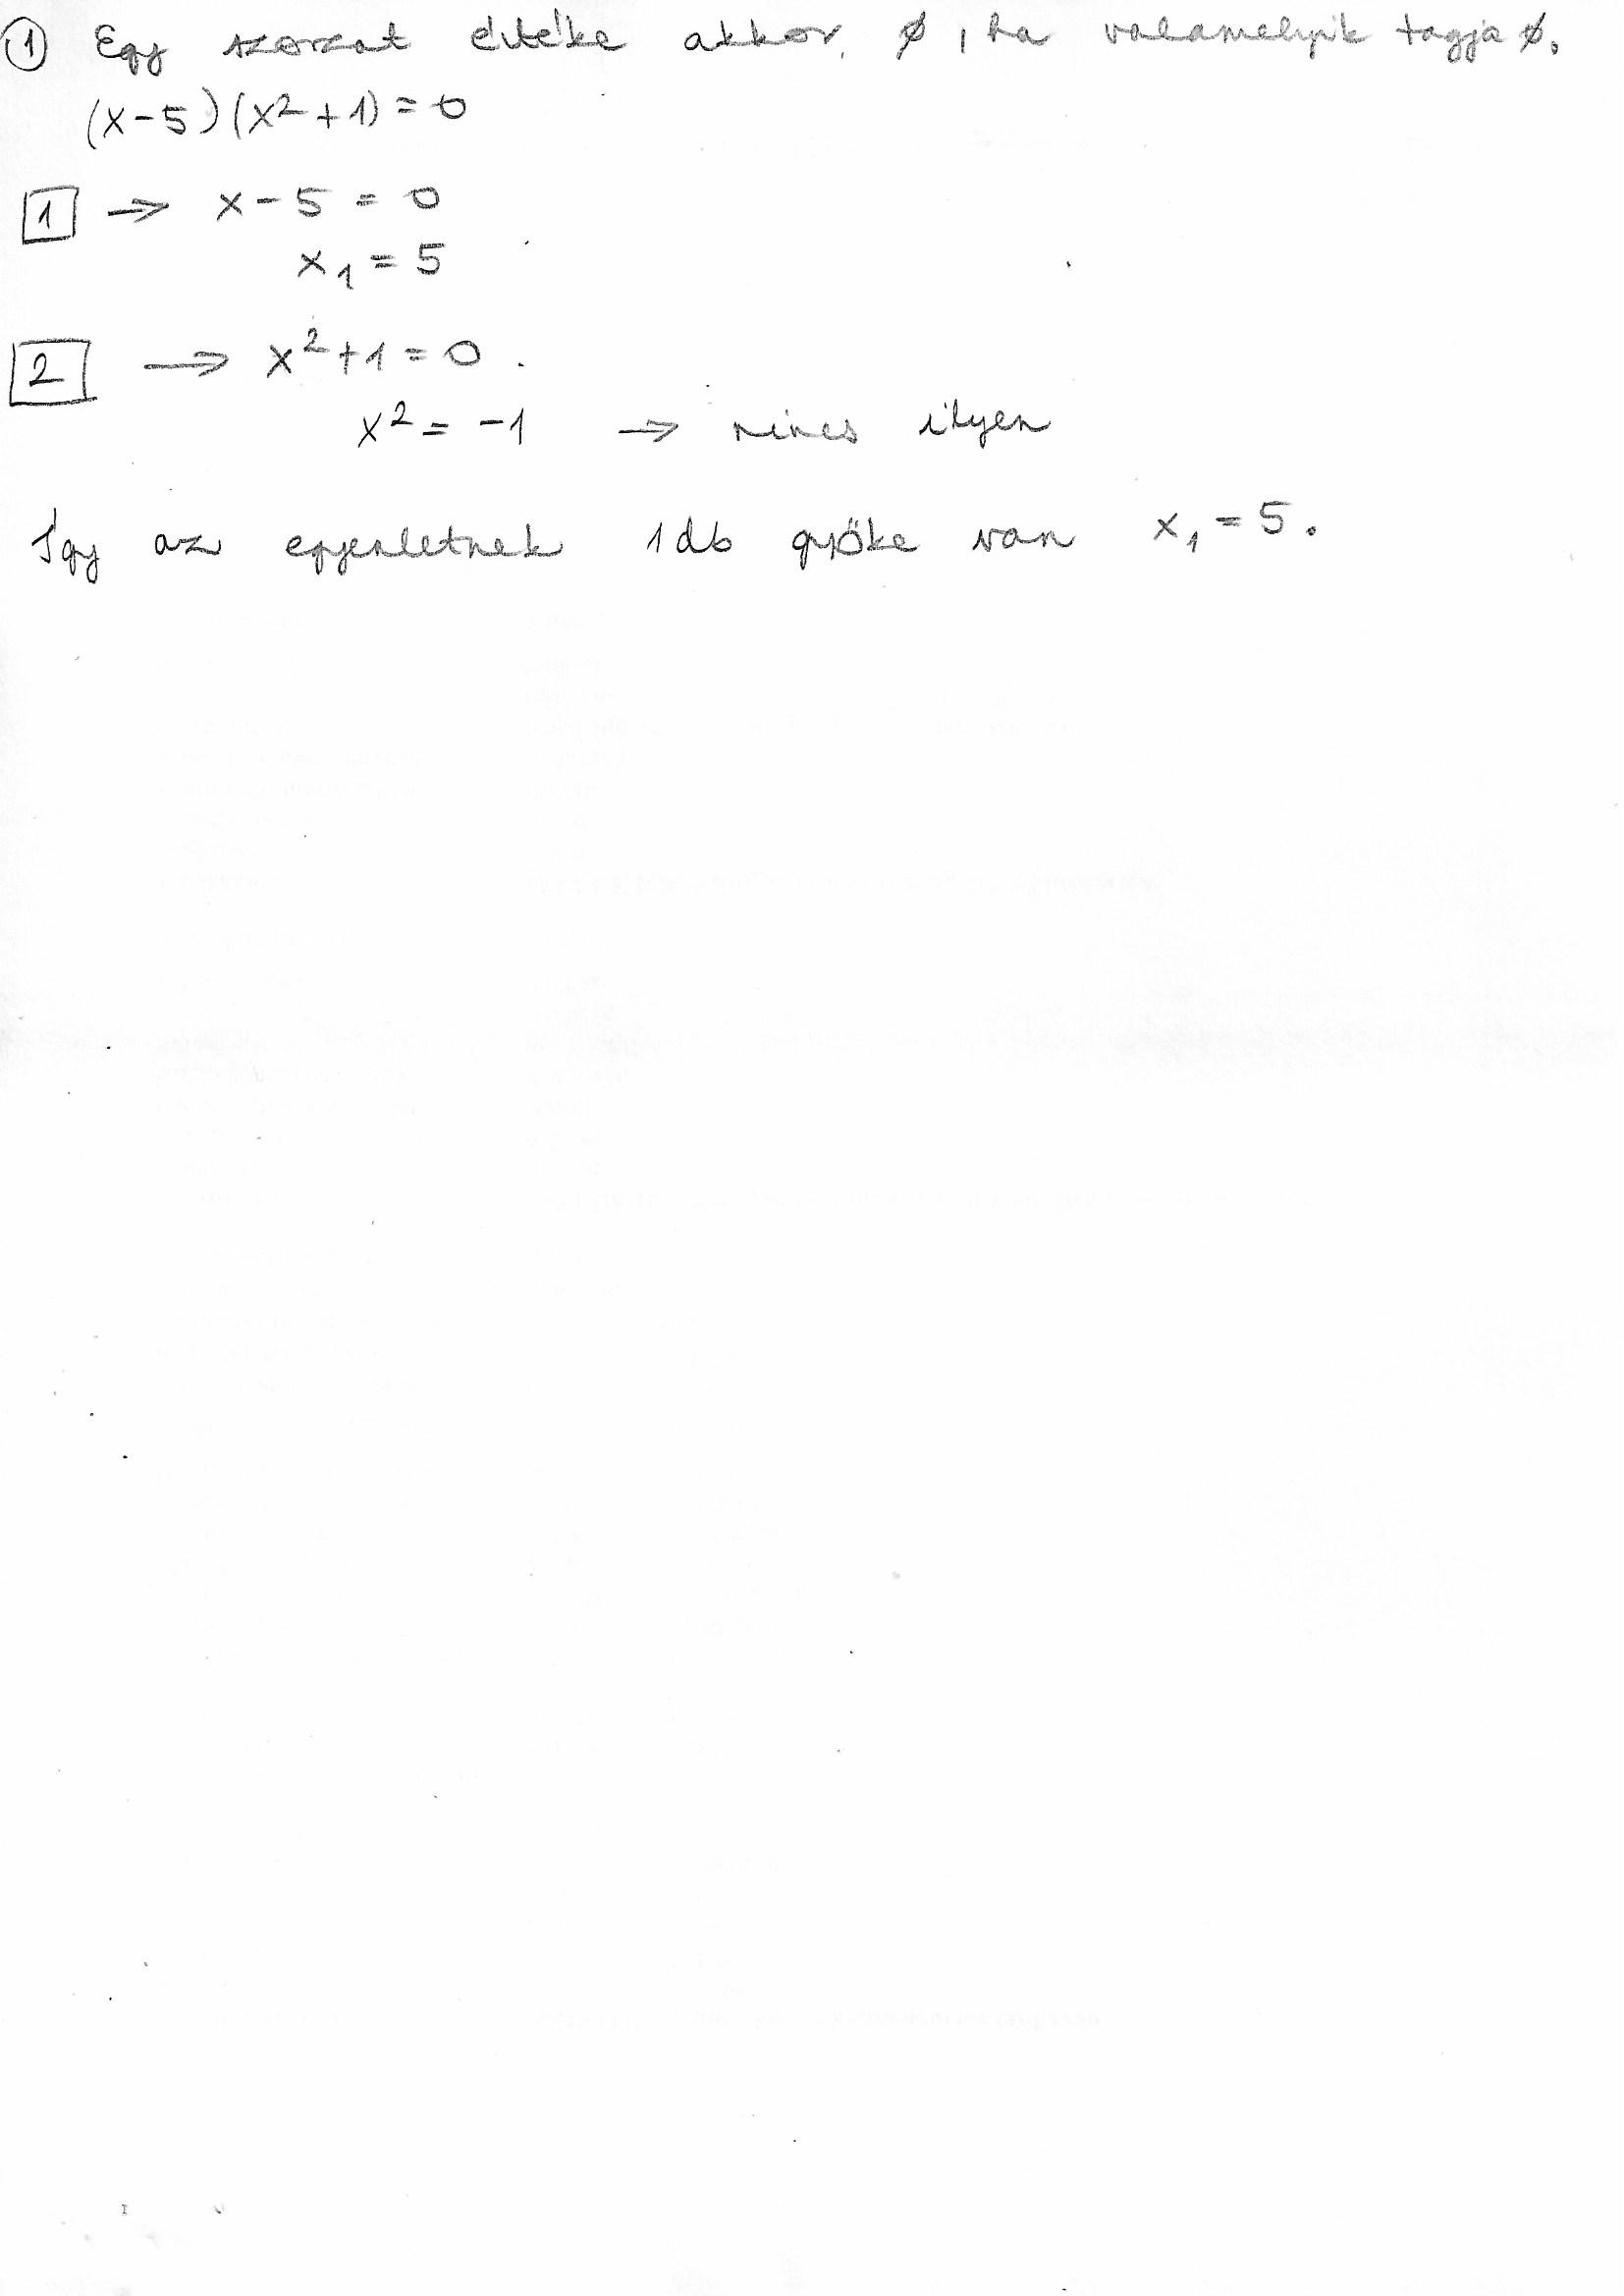 ① Egy szorzat értéke akkor ∅, ha valamelyik tagja ∅.
(x-5)(x²+1)=0
1 → x-5=0
x₁=5
2 → x²+1=0.
x²=-1 → nincs ilyen
Így az egyenletnek 1db gyöke van x₁=5.